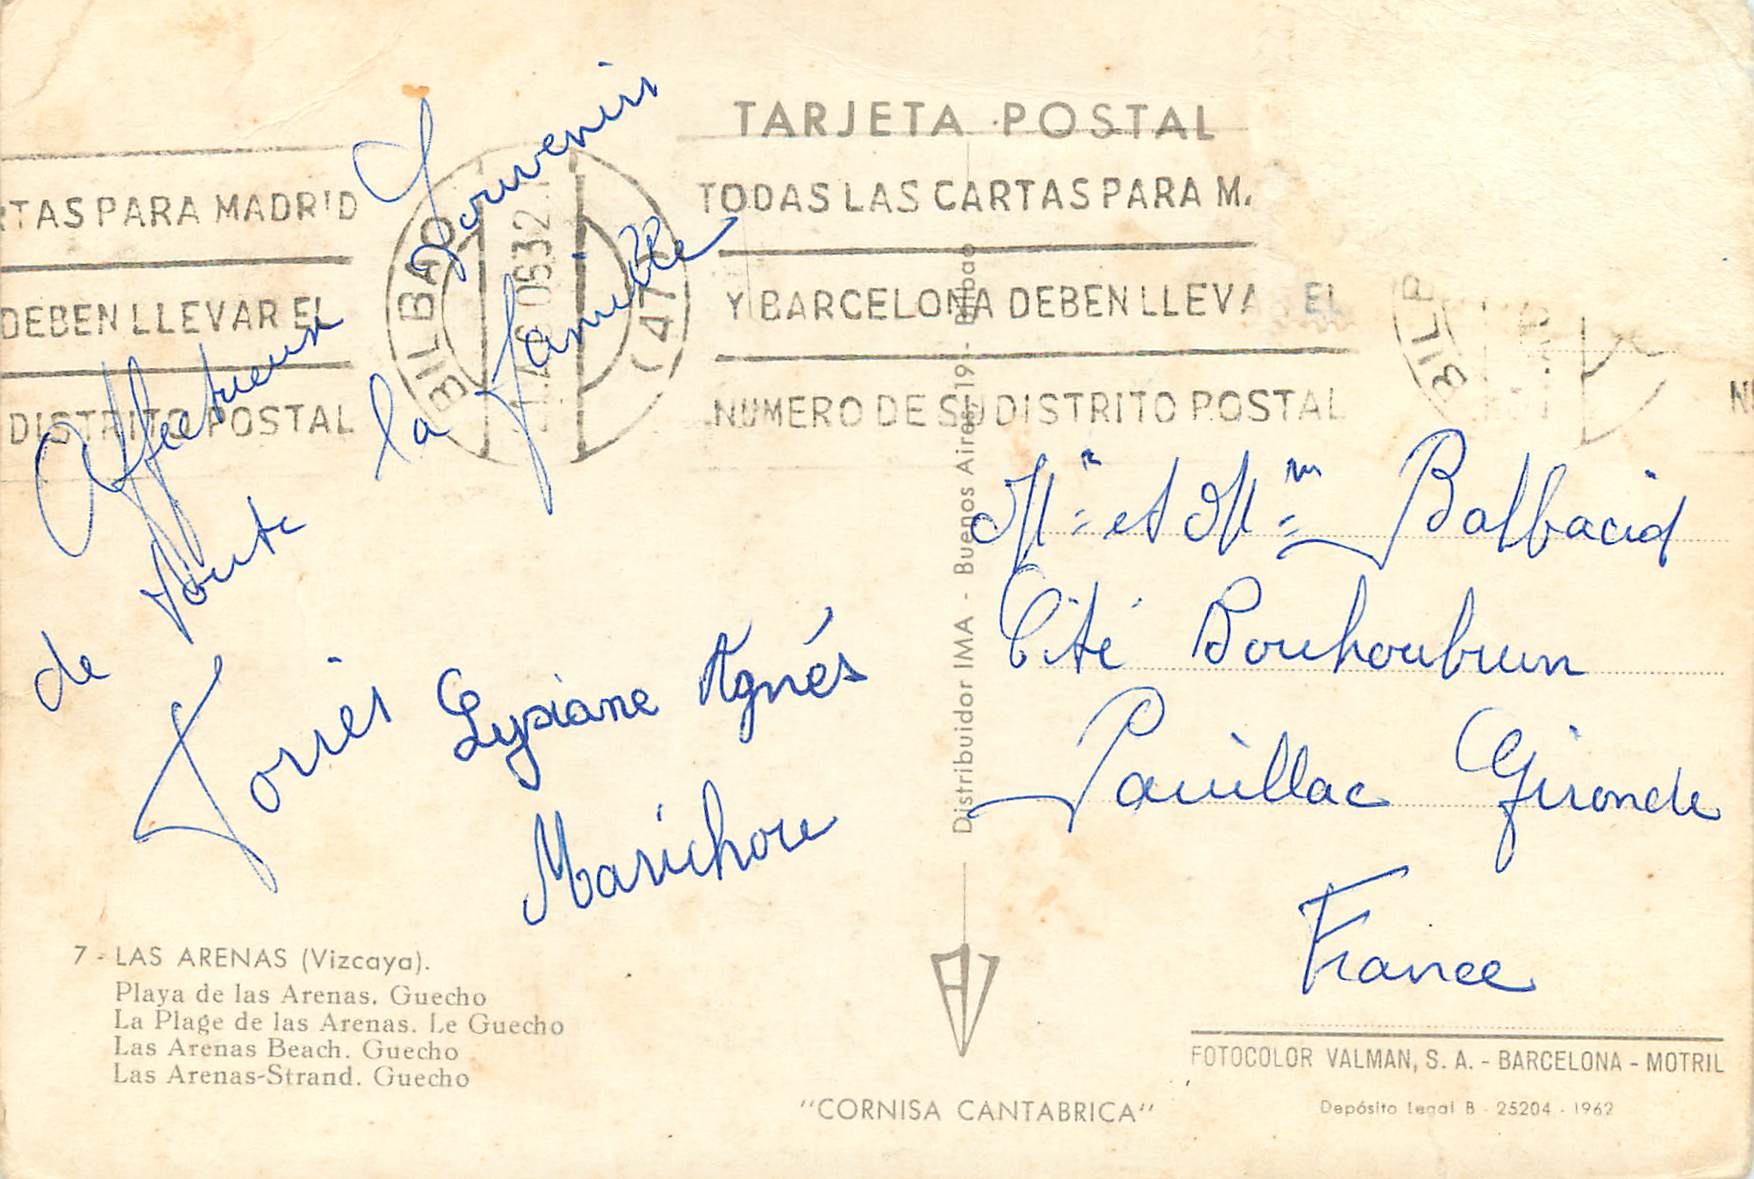 TARJETA POSTAL
RTAS PARA MADRID
DEBEN LLEVAR EL
DISTRITO POSTAL
BILBAO
(47)
TODAS LAS CARTAS PARA M
Y BARCELONA DEBEN LLEVA EL
NUMERO DE SU DISTRITO POSTAL
BILB
Affectueux Souvenir
de toute la famille
Torres Lysiane Agnés
Marichore
Mr et Mm Balbacid
Cité Bouhoubrun
Pauillac Gironde
France
Distribuidor IMA - Buenos Aires, 19 - Bilbao
7 - LAS ARENAS (Vizcaya).
Playa de las Arenas. Guecho
La Plage de las Arenas. Le Guecho
Las Arenas Beach. Guecho
Las Arenas-Strand. Guecho
"CORNISA CANTABRICA"
FOTOCOLOR VALMAN, S. A. - BARCELONA - MOTRIL
Depósito Legal B - 25204 - 1962